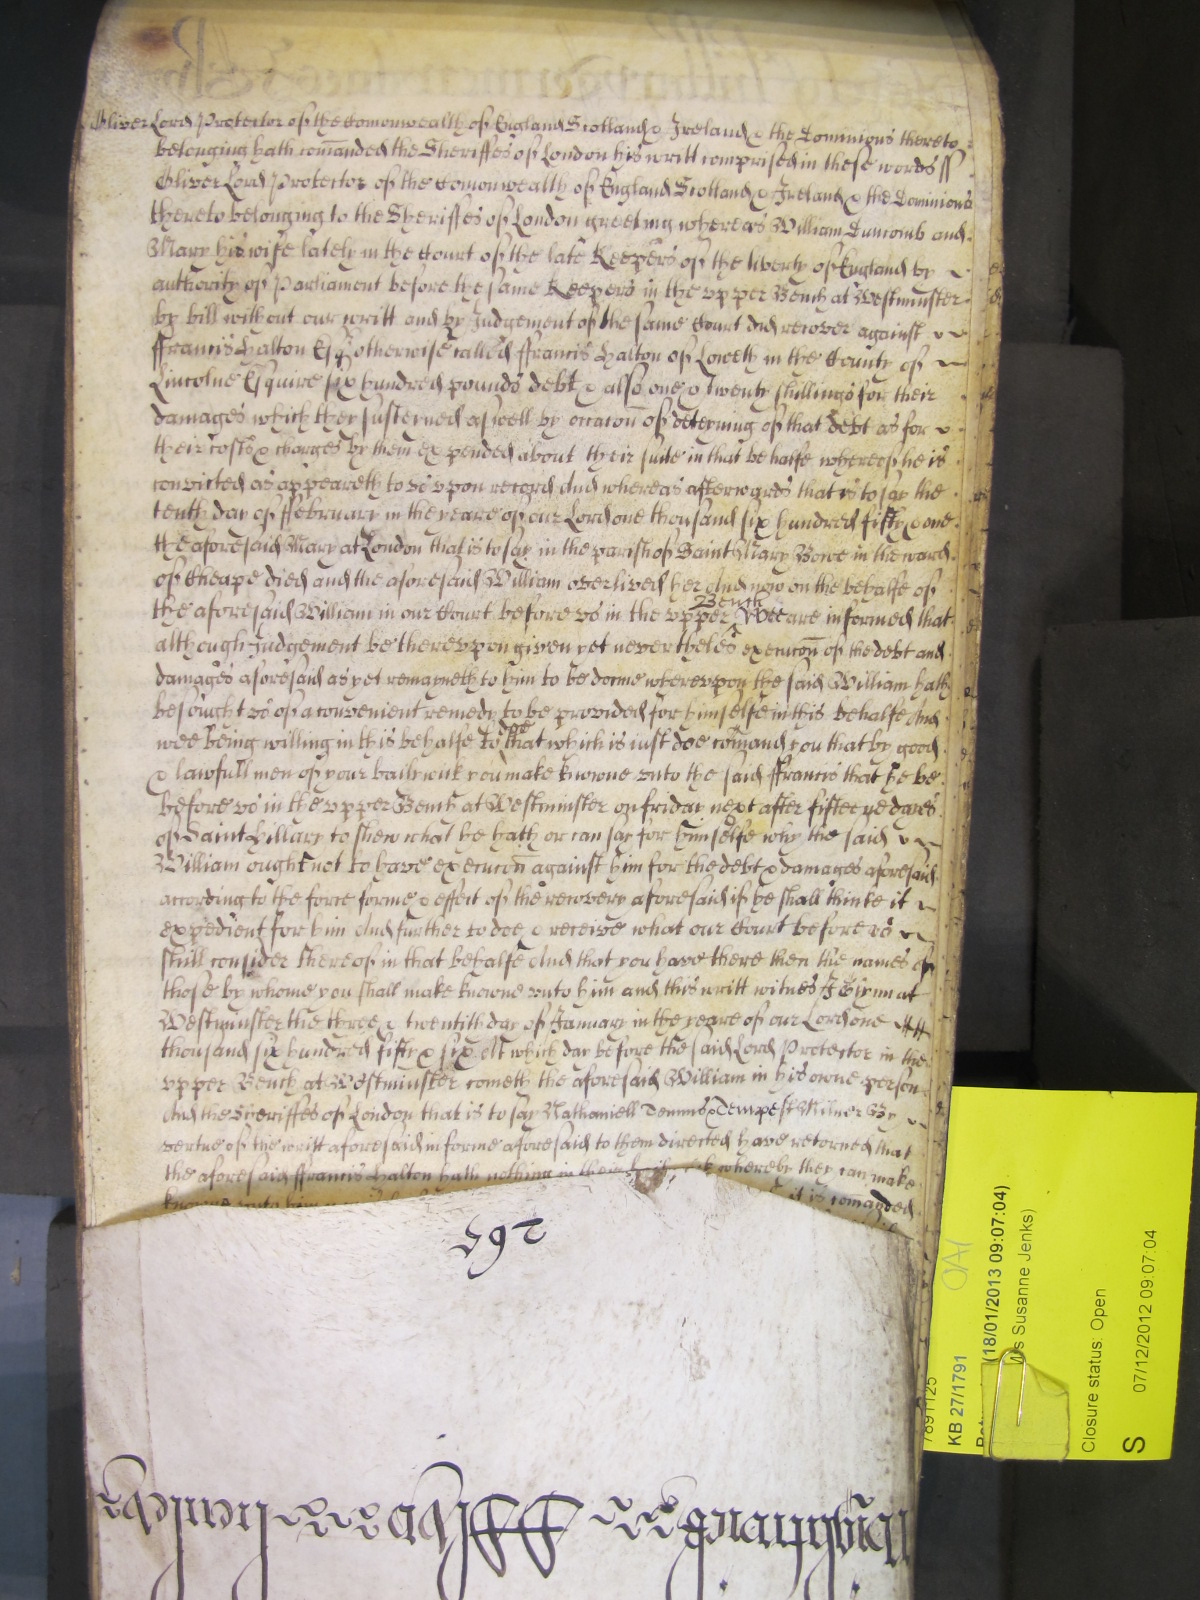 Oliver Lord Protector of the Comonwealth of England Scotland & Ireland & the Dominions thereto
belonging hath comanded the Sheriffes of London his writt comprised in these words ss
Oliver Lord Protector of the Comonwealth of England Scotland & Ireland & the Dominions
thereto belonging to the Sheriffes of London greeting whereas William Duncomb and
Mary his wife lately in the Court of the late Keepers of the liberty of England by
authority of Parliament before the same Keepers in the upper Bench at Westminster
by bill without our writt and by Judgement of the same Court did recover against
ffrancis Halton Esq otherwise called ffrancis Halton of Loweth in the County of
Lincolne Esquire six hundred pounds debt & also one & twenty shillings for their
damages which they susteyned aswell by occacon of deteyning of that debt as for
their costs & charges by them expended about their suite in that behalfe whereof he is
convicted as appeareth to us upon record And whereas afterwards that is to say the
tenth day of ffebruary in the yeare of our Lord one thousand six hundred fifty & one
the aforesaid Mary at London that is to say in the parish of Saint Mary Bowe in the ward
of Cheape died and the aforesaid William overlived her And now on the behalfe of
the aforesaid William in our Court before us in the upper Bench Wee are informed that
although Judgement be thereupon given yet neverthelesse execucon of the debt and
damages aforesaid as yet remayneth to him to be donne whereupon the said William hath
besought us of a convenient remedy to be provided for himselfe in this behalfe And
wee being willing in this behalfe to doe that which is iust doe comand you that by good
& lawfull men of your bailiwick you make knowne unto the said ffrancis that he be
before us in the upper Bench at Westminster on friday next after fifteene dayes
of Saint Hillary to shew what he hath or can say for himselfe why the said
William ought not to have execucon against him for the debt & damages aforesaid
according to the force forme & effect of the recovery aforesaid if he shall thinke it
expedient for him And further to doe & receive what our Court before us
shall consider thereof in that behalfe And that you have there then the names of
those by whome you shall make knowne unto him and this writt witnes J Glynn at
Westminster the three & twentith day of January in the yeare of our Lord one
thousand six hundred fifty & six At which day before the said Lord Protector in the
upper Bench at Westminster cometh the aforesaid William in his owne person
And the Sheriffes of London that is to say Nathaniell Temms & Tempest Milner By
vertue of the writt aforesaid in forme aforesaid to them directed have retorned that
the aforesaid ffrancis Halton hath nothing in their whereby they can make
knowne unto him it is comanded
265
KB 27/1791
(18/01/2013 09:07:04)
Mrs Susanne Jenks)
Closure status: Open
S
07/12/2012 09:07:04